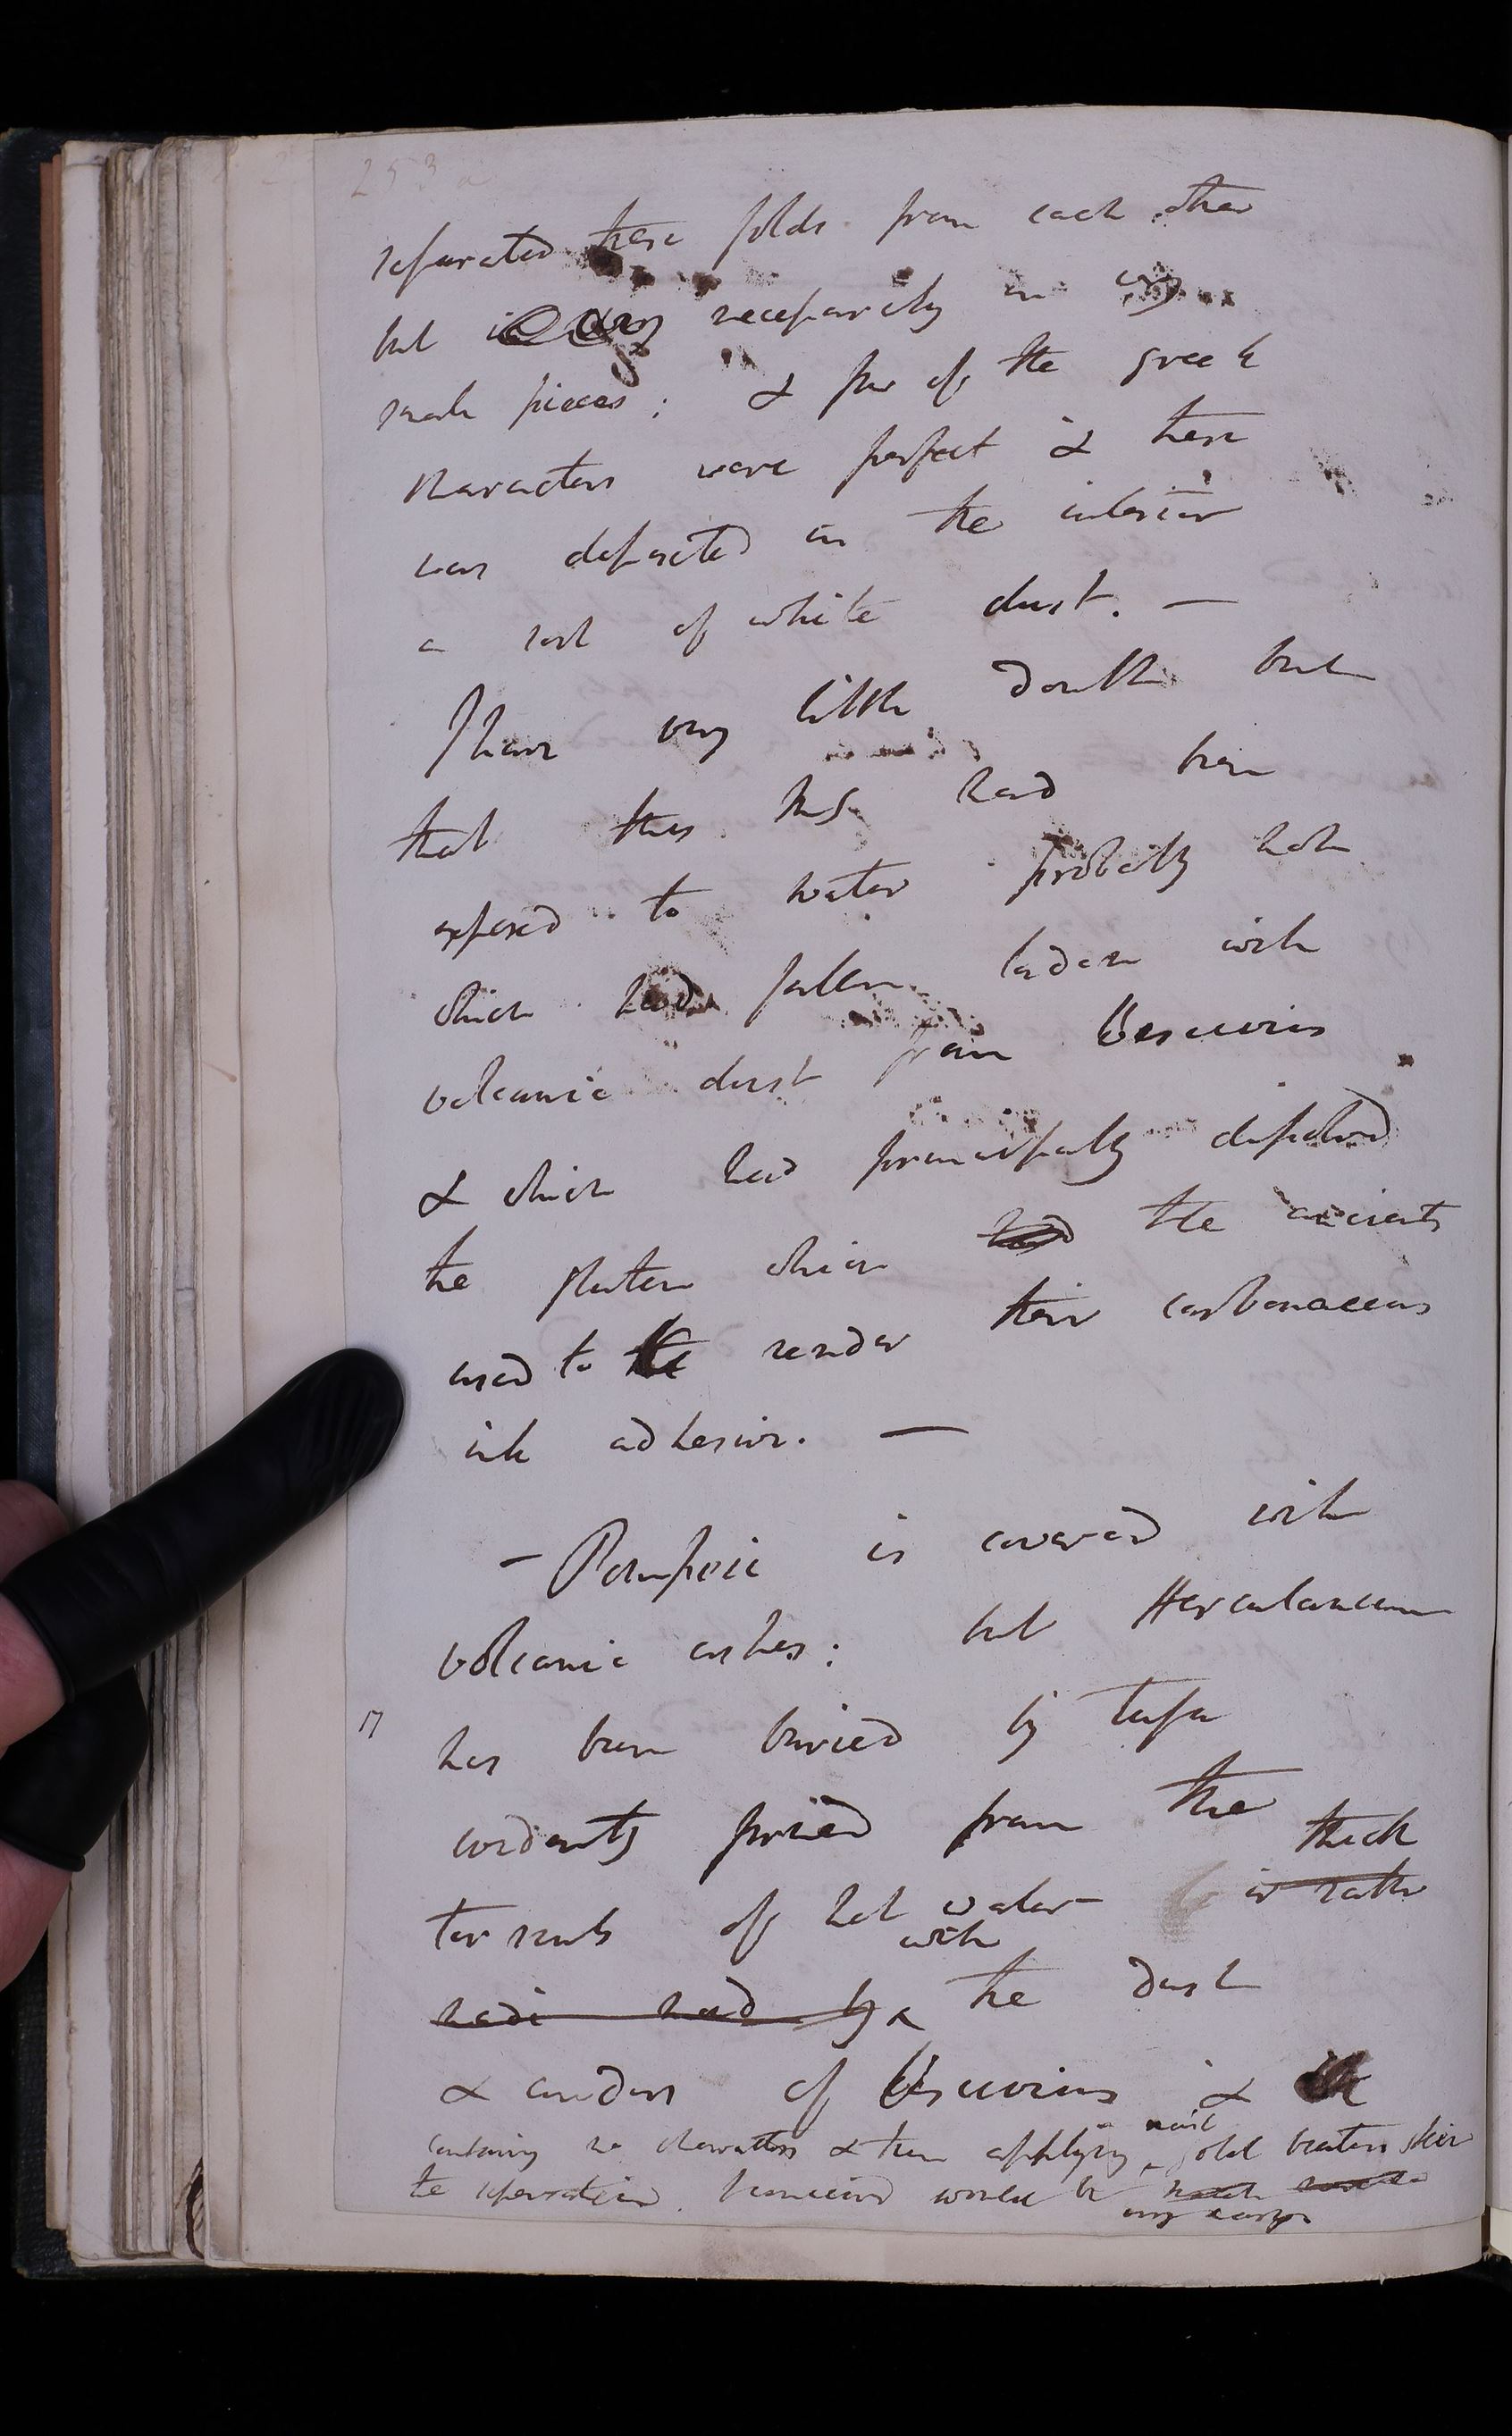 253 a
separated these folds from each other
but in very neceparily in very
small pieces; & few of the greek
characters were perfect & there
was deposited in the interior
a sort of white dust. —
I have very little doubt but
that this MS. had been
exposed to water probably hot
which had fallen laden with
volcanic dust from Vesuvius
& which had principally dissolved
the gluten which had the ancients
used to the render their carbonaceous
ink adhesive. —
— Pompeii is covered with
volcanic ashes: but Herculaneum
17
has been buried by tufa
evidently formed from the
thick
torrents of hot water
with
had by the dust
& cinders of Vesuvius &
moist
containing no characters & then applying gold beaters skin
the operation. I conceived would be
very easy